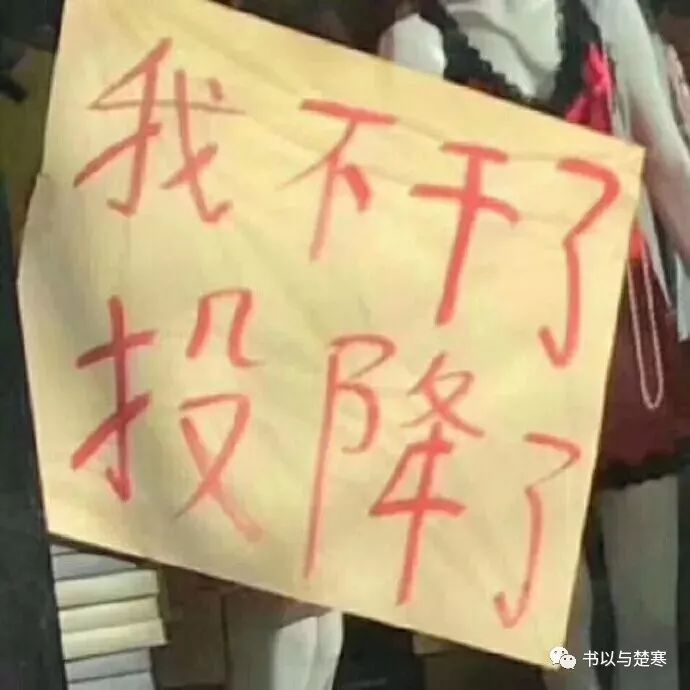 我不干了
投降了
书以与楚寒